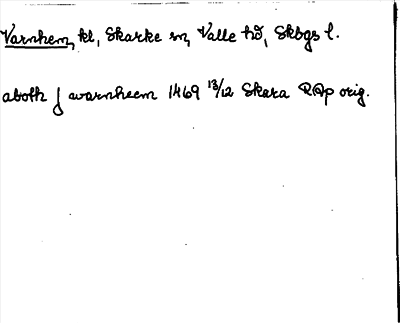 Varnhem, kl, Skarke sn, Valle hd, Skbgs l.
aboth j warnheem 1469 13/12 Skara RAp orig.